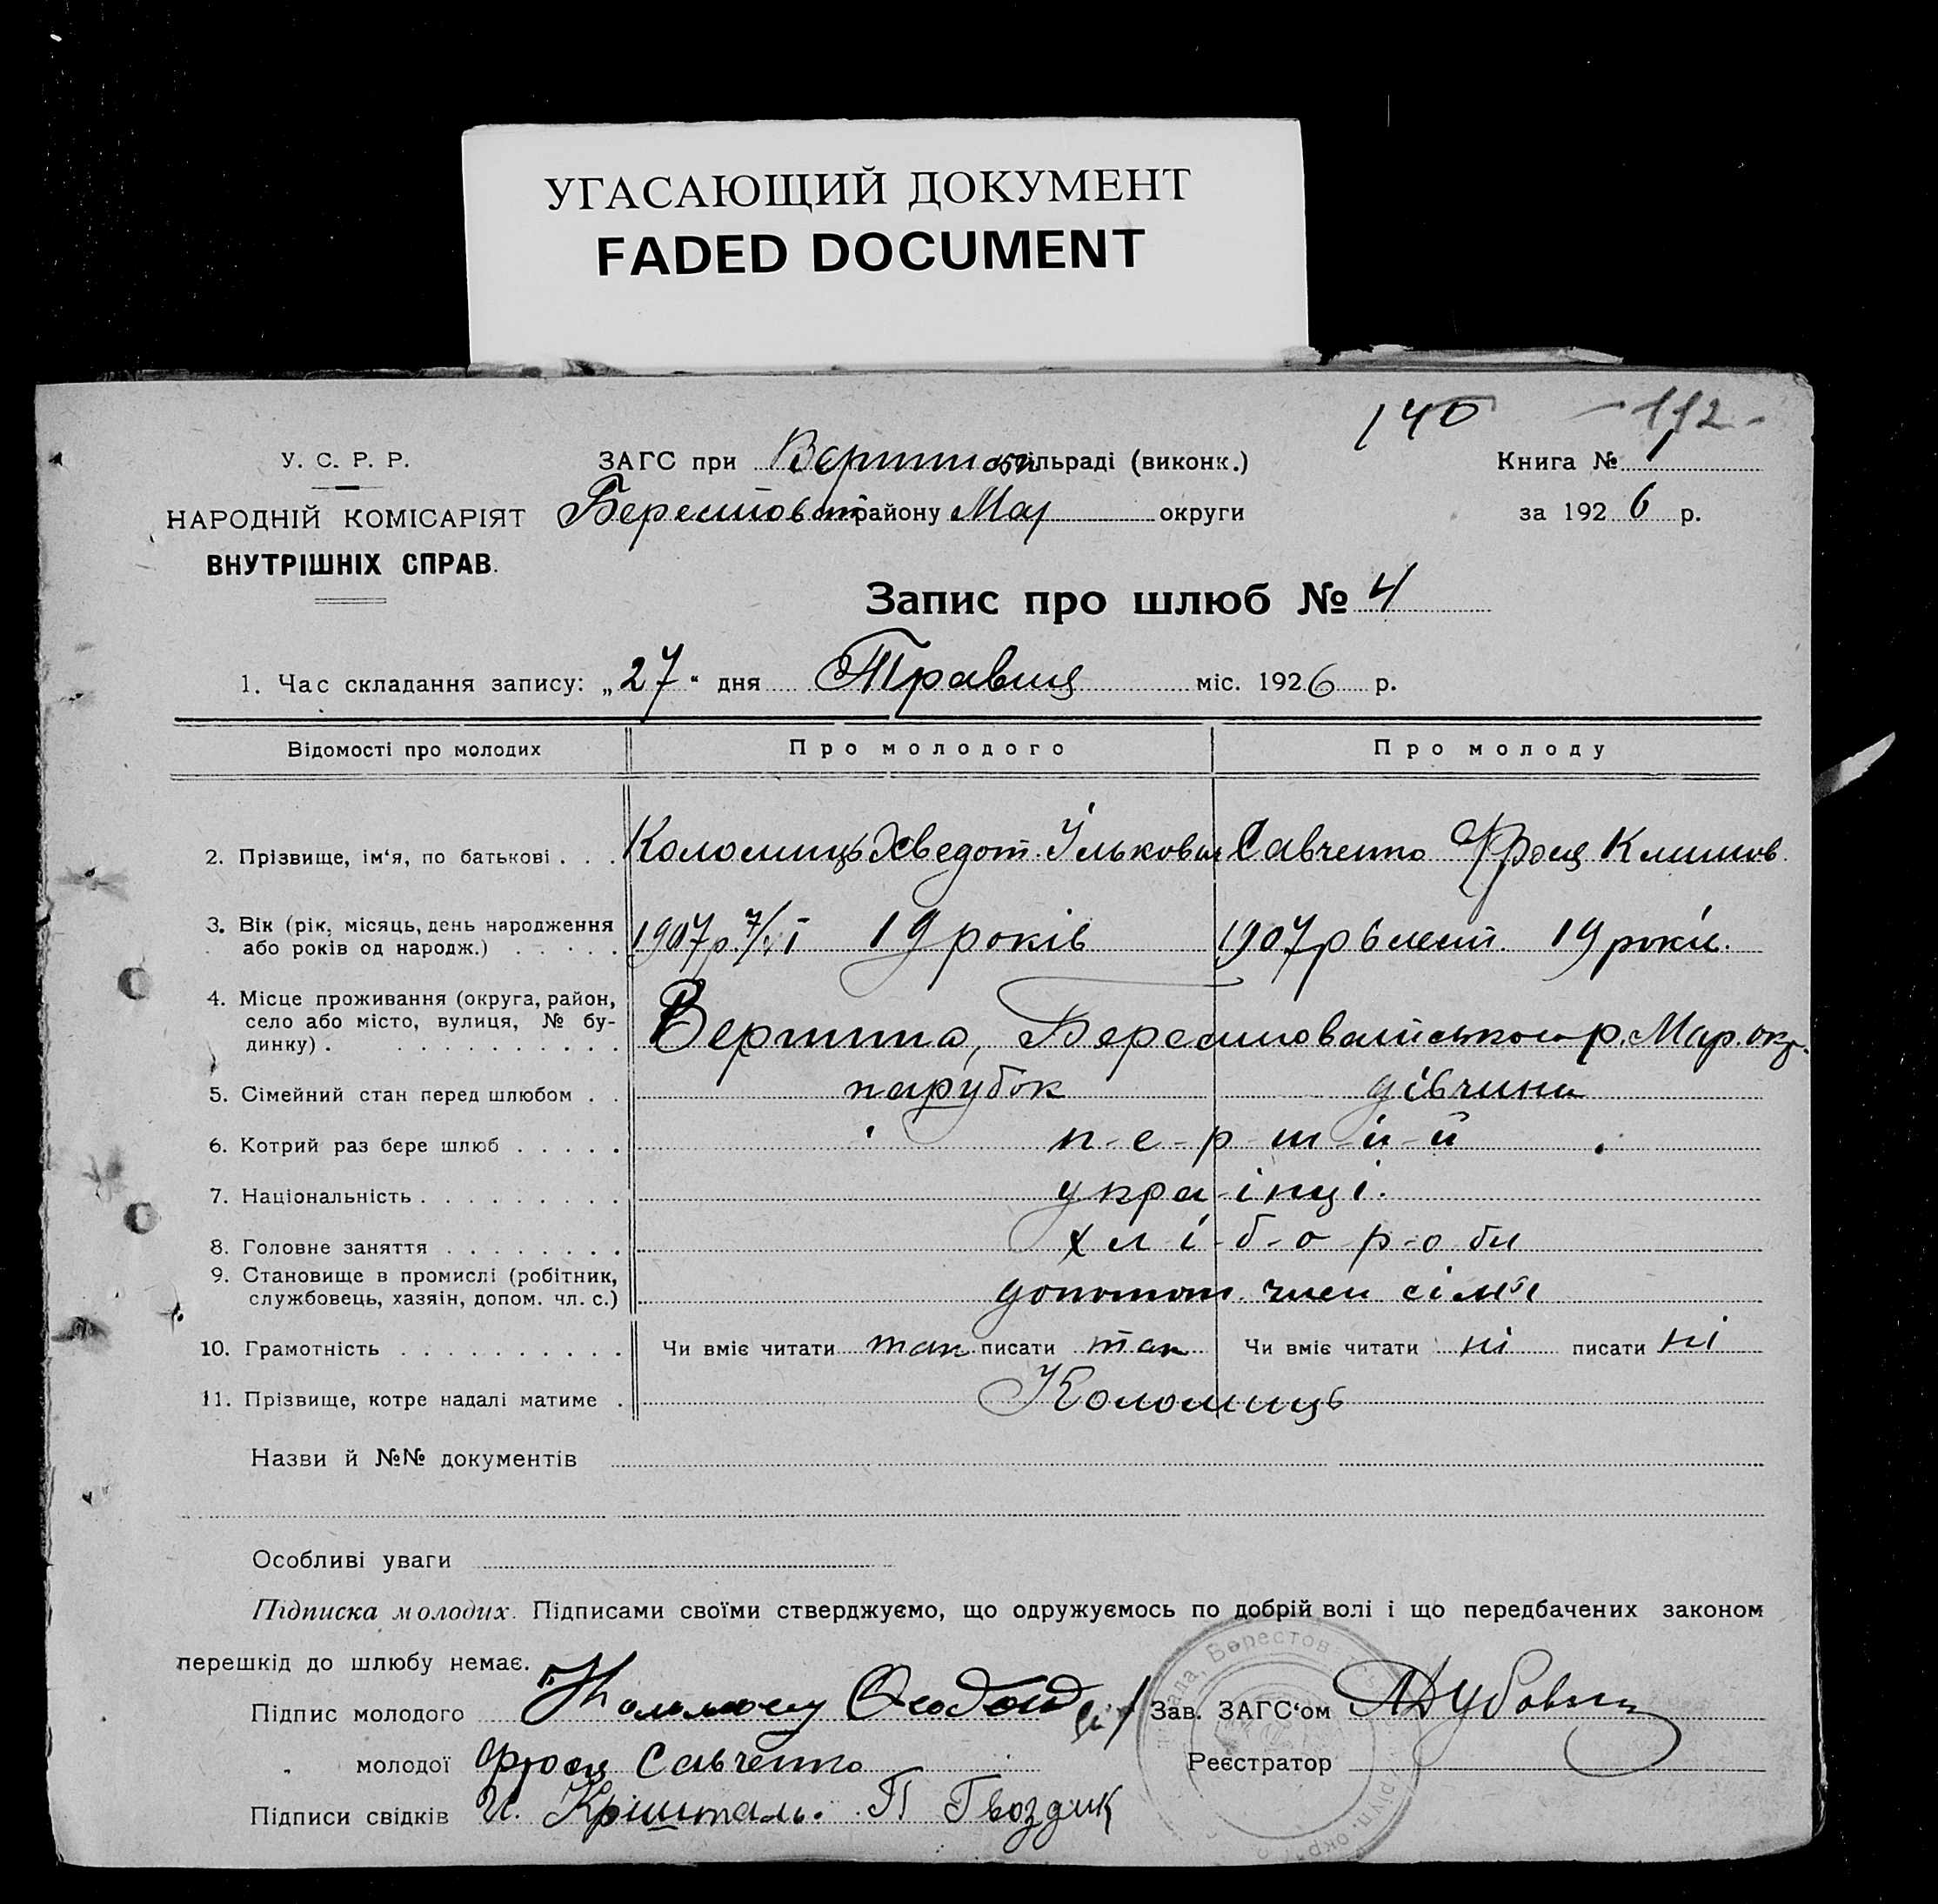 УГАСАЮЩИЙ ДОКУМЕНТ
FADED DOCUMENT
140 -112-
У. С. Р. Р. ЗАГС при сільраді (виконк.) Книга № 1
НАРОДНІЙ КОМІСАРІЯТ Берестов району Мар округи за 1926 р.
ВНУТРІШНІХ СПРАВ.
Запис про шлюб № 4
1. Час складання запису: „27“ дня Травня міс. 1926 р.
Відомості про молодих Про молодого Про молоду
2. Прізвище, ім‘я, по батькові . . . Коломиць Хведот Ількович Савченко Фрося Климов.
3. Вік (рік, місяць, день народження 1907 р. 19 років 1907 р 19 років.
або років од народж.) . . . . .
4. Місце проживання (округа, район,
село або місто, вулиця, № бу-
динку) . . . . . . . . . . . р. Мар. окр.
5. Сімейний стан перед шлюбом . . парубок дівчина
6. Котрий раз бере шлюб . . . . . п-е-р-ш-и-й
7. Національність . . . . . . . . . укра-інці.
8. Головне заняття . . . . . . . . хлі-б-о-р-о би
9. Становище в промислі (робітник,
службовець, хазяїн, допом. чл. с.) допомог. член сімї
10. Грамотність . . . . . . . . . . Чи вміє читати так писати так Чи вміє читати ні писати ні
11. Прізвище, котре надалі матиме . Коломиць
Назви й №№ документів
Особливі уваги
Підписка молодих. Підписами своїми стверджуємо, що одружуємось по добрій волі і що передбачених законом
перешкід до шлюбу немає.
Підпис молодого Зав. ЗАГС‘ом
„ молодої Фрося Савченко Реєстратор
Підписи свідків И. Кришталь. П Гвоздик